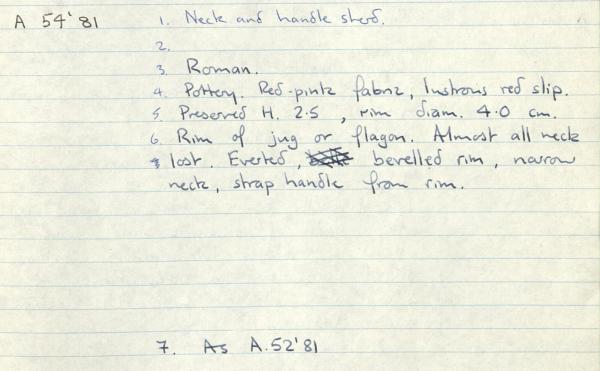 A 54'81 1. Neck and handle sherd.
2.
3. Roman.
4. Pottery. Red-pink fabric, lustrous red slip.
5. Preserved H. 2.5, rim diam. 4.0 cm.
6. Rim of jug or flagon. Almost all neck
lost. Everted, bevelled rim, narrow
neck, strap handle from rim.
7. As A.52'81